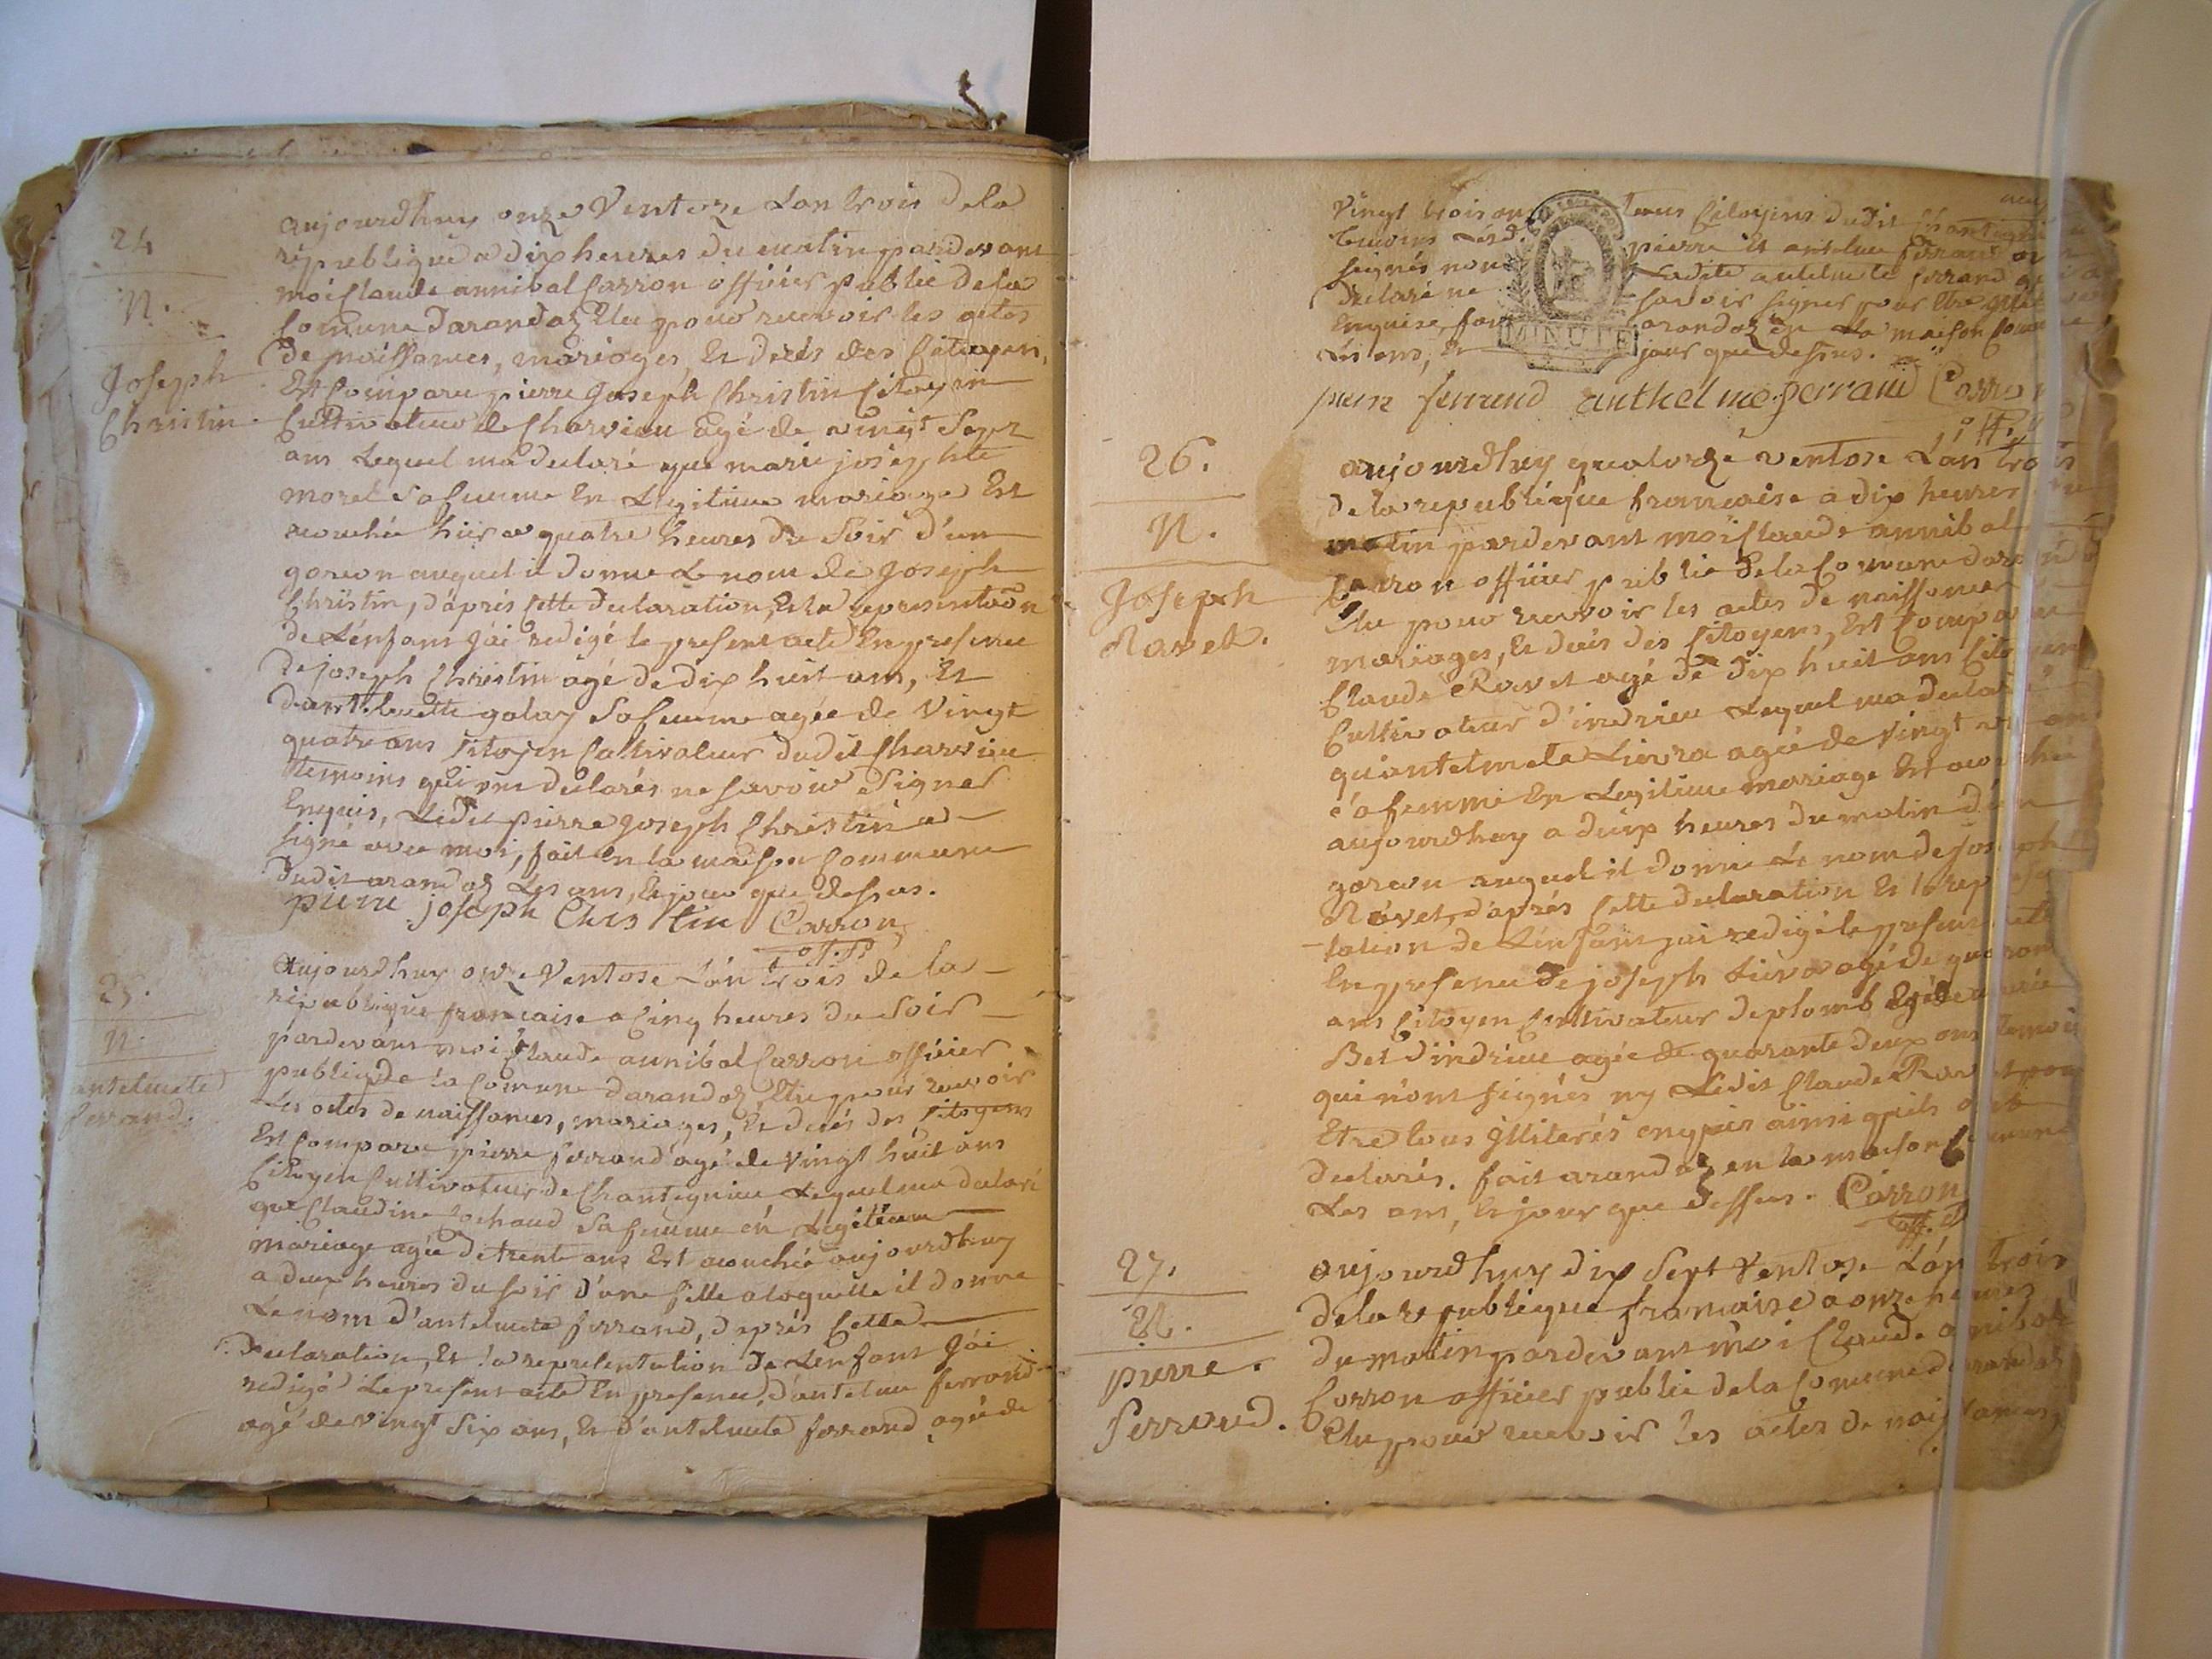 24
N.
Joseph
Christin.
aujourdhuy onze Ventoze Lan trois de la
republique a dix heures du matin pardevant
moi Claude annibal Carron officier public de la
Comune darandaz Elu pour recevoir les actes
de naissances, mariages, Et decés des Citoyens,
Est Comparu pierre Joseph Christin Citoyen
Cultivateur de Charvieu agé de vingt Sept
ans Lequel ma declaré que marie josephte
morel Sa femme En Legitime mariage Est
acouchée hier a quatre heures du Soir d'un
garcon auquel il donne Le nom de Joseph
Christin, d'aprés Cette declaration, Et la representation
de L'enfant J'ai redigé le present acte En presence
de joseph Christin agé de dix huit ans, Et
dantelmette galay Sa femme agée de Vingt
quatre ans Citoyen Cultivateur dudit Charvieu
temoins qui ont declarés ne savoir Signer
Enquis, Ledit pierre Joseph Christin a
signé avec moi, fait en la maison Commune
dudit arandaz Les ans, Et jour que dessus.
pierre joseph Chris tin Carron
off. p.
25.
N.
antelmete
ferrand.
Aujourdhuy onze Ventose L'an trois de la
republique francaise a Cinq heures du Soir
pardevant moi Claude annibal Carron officier
public de la Comune darandaz Elu pour recevoir
Les actes de naissances, mariages, Et decés des Citoyens
Est Comparu pierre ferrand agé de Vingt huit ans
Citoyen Cultivateur de Chantegnieu Lequel ma declaré
que Claudine Cochaud Sa femme en Legitime
mariage agée de trente ans Est acouchée aujourdhuy
a deux heures du soir d'une fille a laquelle il donne
Le nom d'antelmete ferrand, d'aprés Cette
declaration, Et la representation de L'enfant J'ai
redigé Le present acte En presence, d'antelme ferrand
agé de Vingt Six ans, Et d'antelmete ferrand agée de
Vingt trois ans tous Citoyens dudit Chantegnieu
temoins Lesd. pierre Et antelme ferrand
signés non Ladite antelmete ferrand
declaré ne savoir signer pour Etre
Enquise, fait arandaz En La maison
Les ans, Et jour que dessus.
pierre ferrand anthelme ferrand Carron
off.
26.
N.
Joseph
Ravet.
aujourdhuy quatorze ventose L'an trois
de la republique francaise a dix heures
matin pardevant moi Claude annibal
Carron officier public de la Comune
Elu pour recevoir les actes de naissances
mariages, Et decés des Citoyens, Est Comparu
Claude Ravet agé de dix huit ans Citoyen
Cultivateur d'indrieu Lequel ma declaré
qu'antelmete Livra agée de Vingt
sa femme En Legitime mariage Est acouchée
aujourdhuy a deux heures du matin d'un
garcon auquel il donne Le nom de joseph
Ravet, d'aprés Cette declaration Et la represen
-tation de L'enfant j'ai redigé le present acte
En presence de joseph Livra agé de
ans Citoyen Cultivateur de plomb Et de marie
Bet d'indrieu agée de quarante deux ans temoins
qui n'ont signés ny Ledit Claude Ravet pour
Etre tous illiterés enquis ainsi quils ont
declarés. fait arandaz en la maison Comune
Les ans, Et jour que dessus. Carron
off. p.
27.
N.
pierre.
ferrand.
aujourdhuy dix Sept Ventose L'an trois
de la republique francaise a onze heures
du matin pardevant moi Claude anibal
Carron officier public de la Comune darandaz
Elu pour recevoir les actes de naissances,
MINUTE